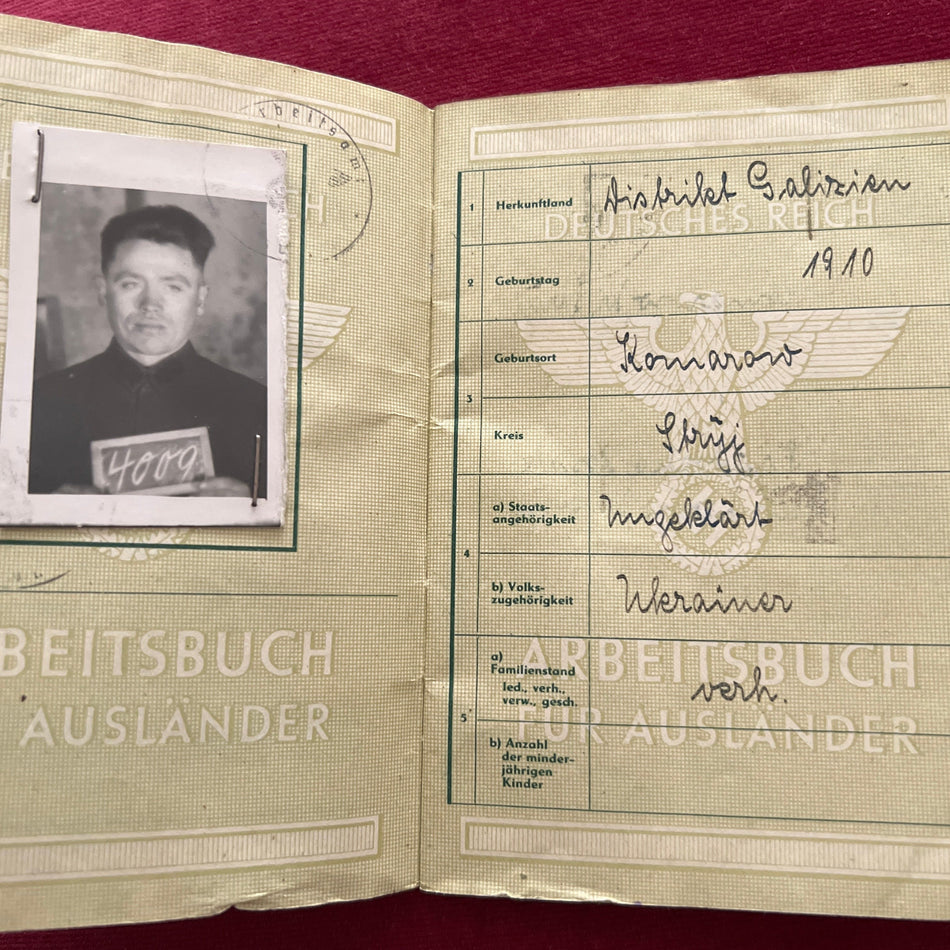 Arbeitsamt
H
4009
BEITSBUCH
AUSLÄNDER
DEUTSCHES REICH
1 Herkunftland Distrikt Galizien
2 Geburtstag 1910
3 Geburtsort Komarow
Kreis Stryj
4 a) Staats-
angehörigkeit Ungeklärt
b) Volks-
zugehörigkeit Ukrainer
5 a)
Familienstand
led., verh.,
verw., gesch. verh.
b) Anzahl
der minder-
jährigen
Kinder
ARBEITSBUCH
FÜR AUSLÄNDER